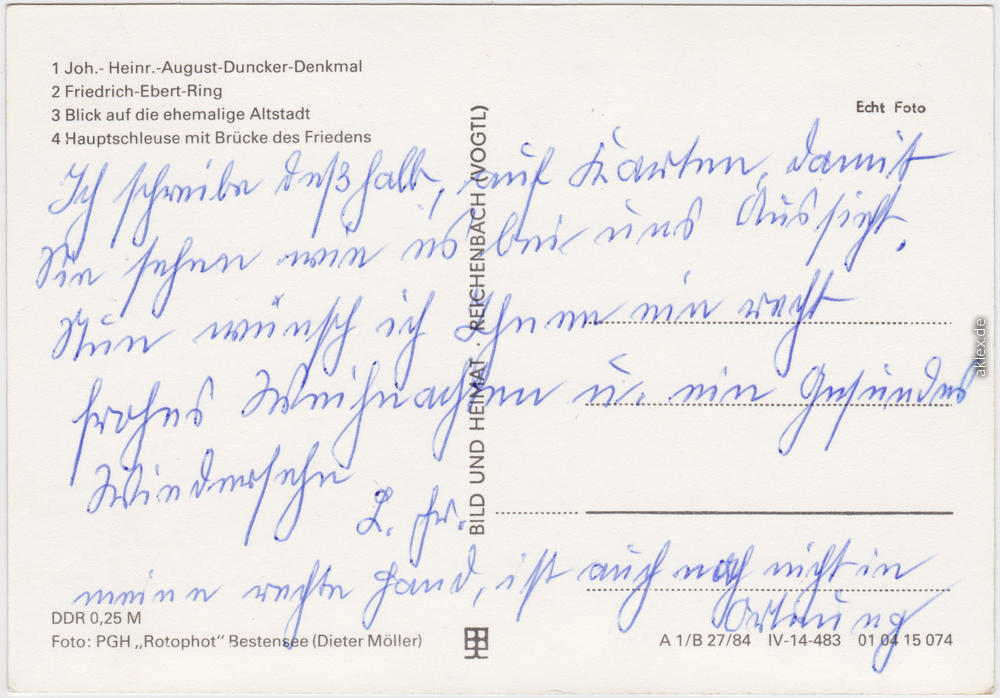 1 Joh.- Heinr.-August-Duncker-Denkmal
2 Friedrich-Ebert-Ring
3 Blick auf die ehemalige Altstadt
4 Hauptschleuse mit Brücke des Friedens
Echt Foto
Ich schreibe deßhalb, auf Karten, damit
Sie sehen wie es bei uns Aussieht.
Nun wünsch ich Ihnen ein recht
frohes Weihnachten u. ein Gesundes
Wiedersehn
L. Fr.
meine rechte Hand, ist auch noch nicht in
Ortnung
BILD UND HEIMAT · REICHENBACH (VOGTL)
DDR 0,25 M
Foto: PGH „Rotophot" Bestensee (Dieter Möller)
A 1/B 27/84 IV-14-483 01 04 15 074
aklex.de